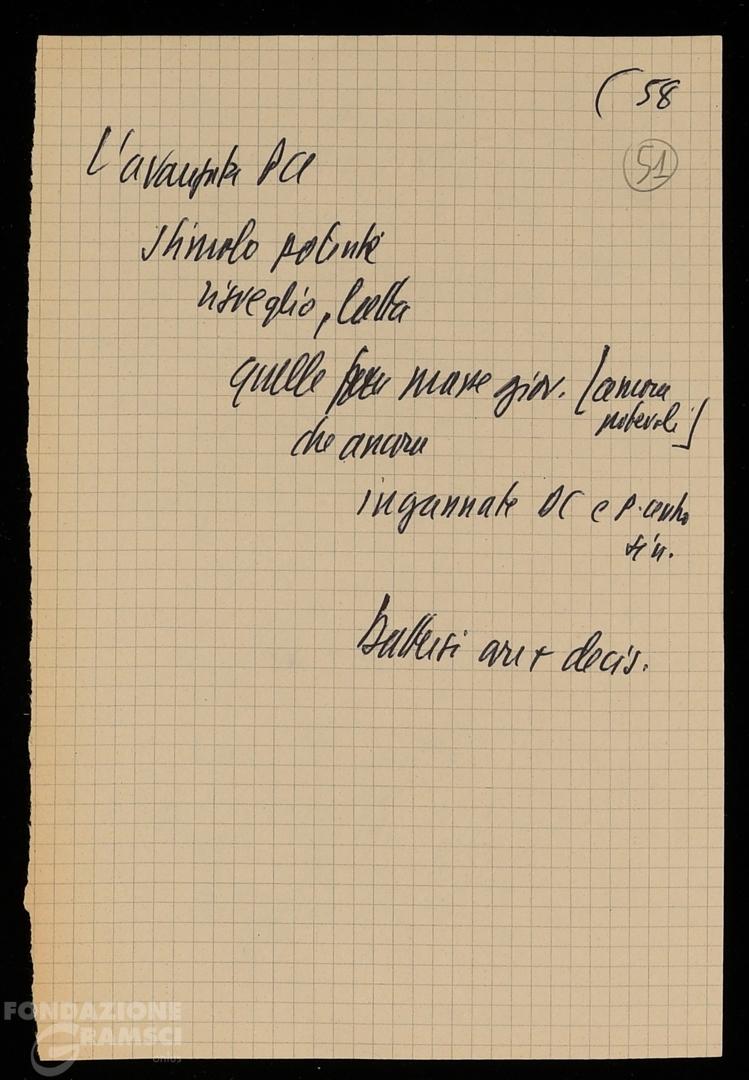 ( 58
51
L'avanzata PCI
stimolo potente
risveglio, lotta
quelle masse giov. [ancora
notevoli]
che ancora
ingannate DC e P. centro
sin.
Battersi con + decis.
FONDAZIONE
GRAMSCI
onlus